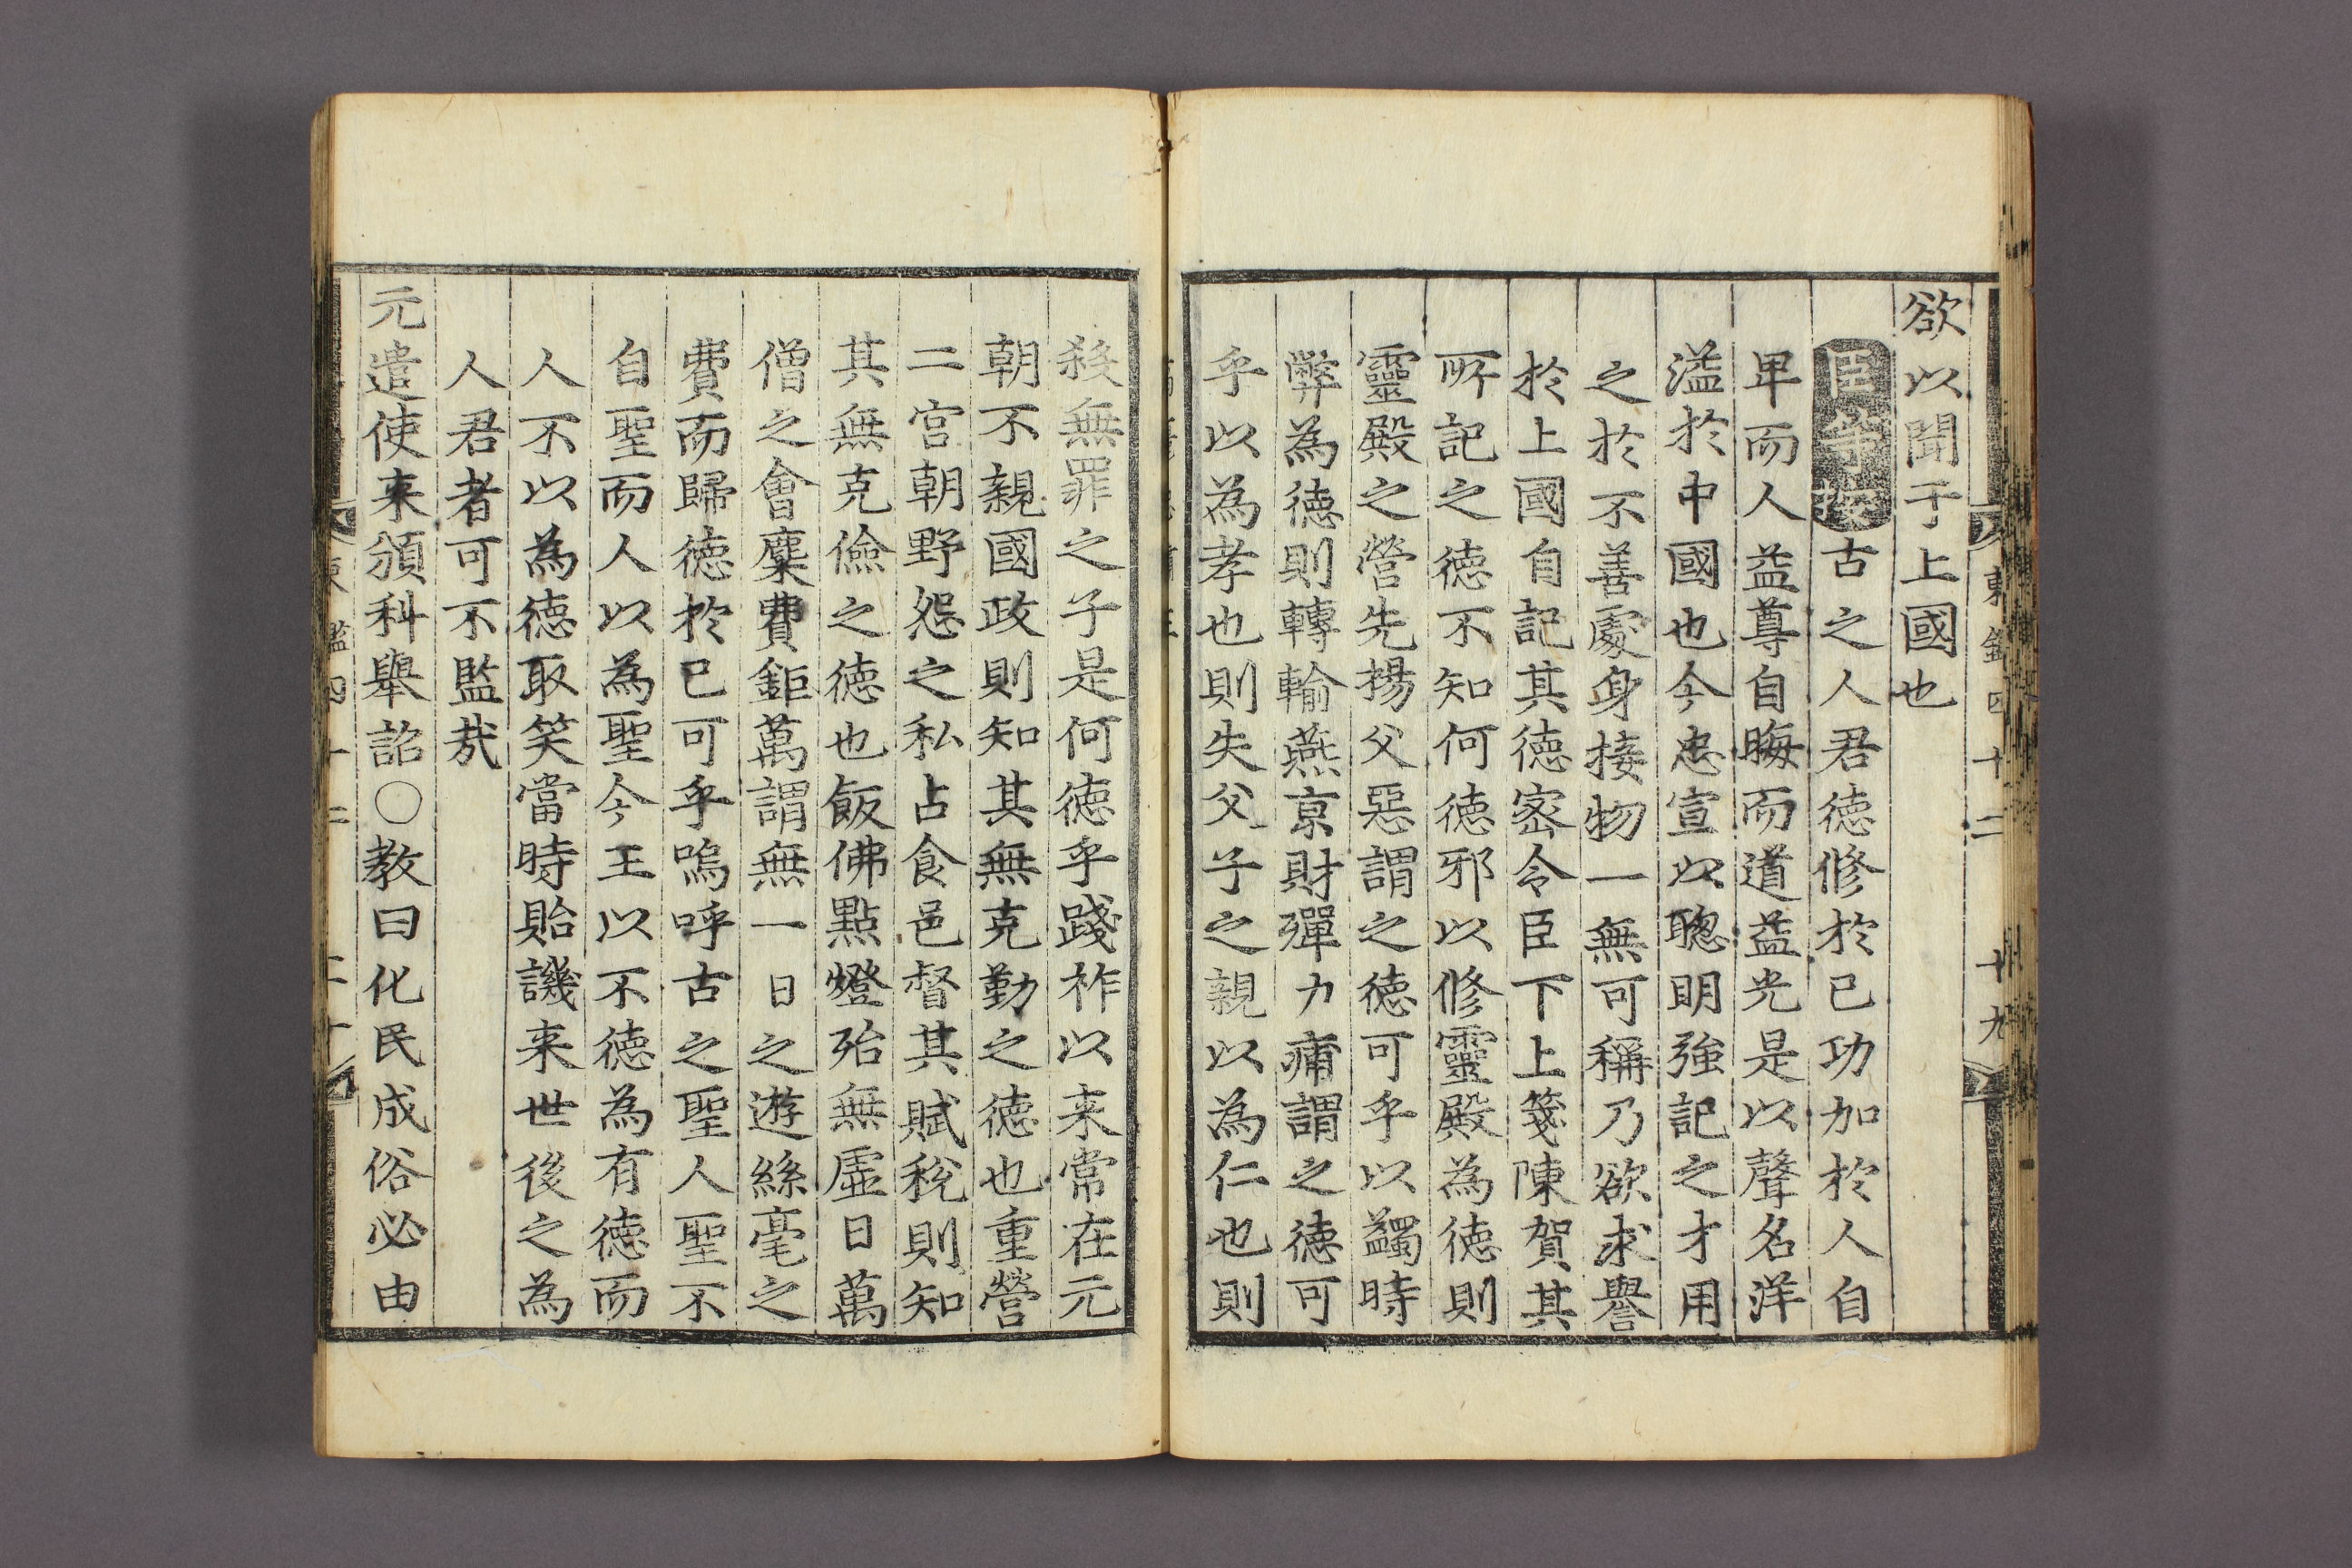 東鑑四十二 十九
欲以聞于上國也
臣等按古之人君德修於已功加於人自
卑而人益尊自晦而道益光是以聲名洋
溢於中國也今忠宣以聰明強記之才用
之於不善處身接物一無可稱乃欲求譽
於上國自記其德密令臣下上箋陳賀其
所記之德不知何德邪以修靈殿為德則
靈殿之營先揚父惡謂之德可乎以蠲時
弊為德則轉輸燕京財彈力痡謂之德可
乎以為孝也則失父子之親以為仁也則
殺無罪之子是何德乎踐祚以来常在元
朝不親國政則知其無克勤之德也重營
二宮朝野怨之私占食邑督其賦稅則知
其無克儉之德也飯佛點燈殆無虛日萬
僧之會糜費鉅萬謂無一日之遊絲毫之
費而歸德於已可乎嗚呼古之聖人聖不
自聖而人以為聖今王以不德為有德而
人不以為德取笑當時貽譏来世後之為
人君者可不監㢤
元遣使来頒科舉詔○教曰化民成俗必由
東鑑四十二 二十